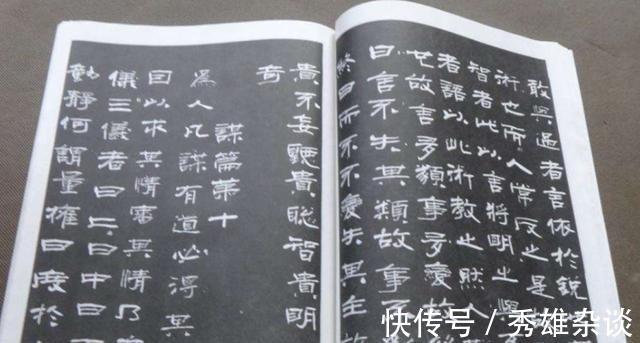 敢與過者言依於銳
術也而人常反之是
智者此以言將明之
者語以此術教之然人
也故言多類事多變故
日言不失其類故事不
終日而不不變失其主故
貴不妄聽貴聰智貴明
奇
謀篇第十
為人凡謀有道必得其
因以求其情審其情乃
儀三儀者曰上曰中曰
動靜何謂量權曰度於
快传号 / 秀雄杂谈